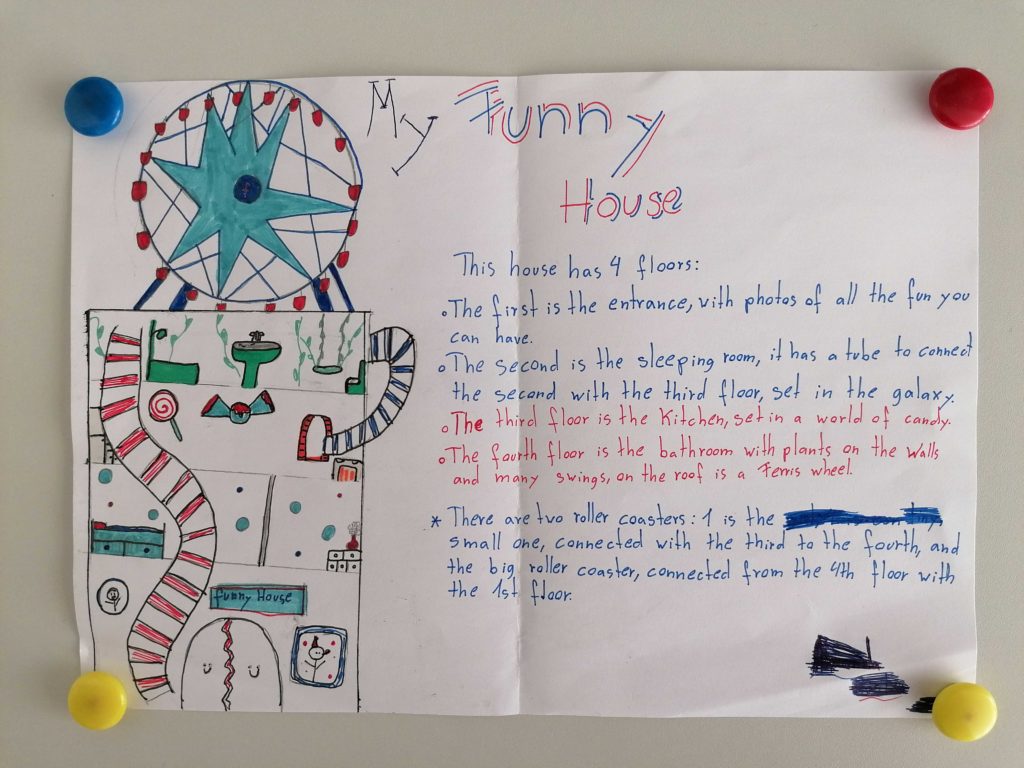 My Funny
House
This house has 4 floors:
• The first is the entrance, with photos of all the fun you
can have.
• The second is the sleeping room, it has a tube to connect
the second with the third floor, set in the galaxy.
• The third floor is the Kitchen, set in a world of candy.
• The fourth floor is the bathroom with plants on the walls
and many swings, on the roof is a Ferris wheel.
* There are two roller coasters: 1 is the
small one, connected with the third to the fourth, and
the big roller coaster, connected from the 4th floor with
the 1st floor.
funny House